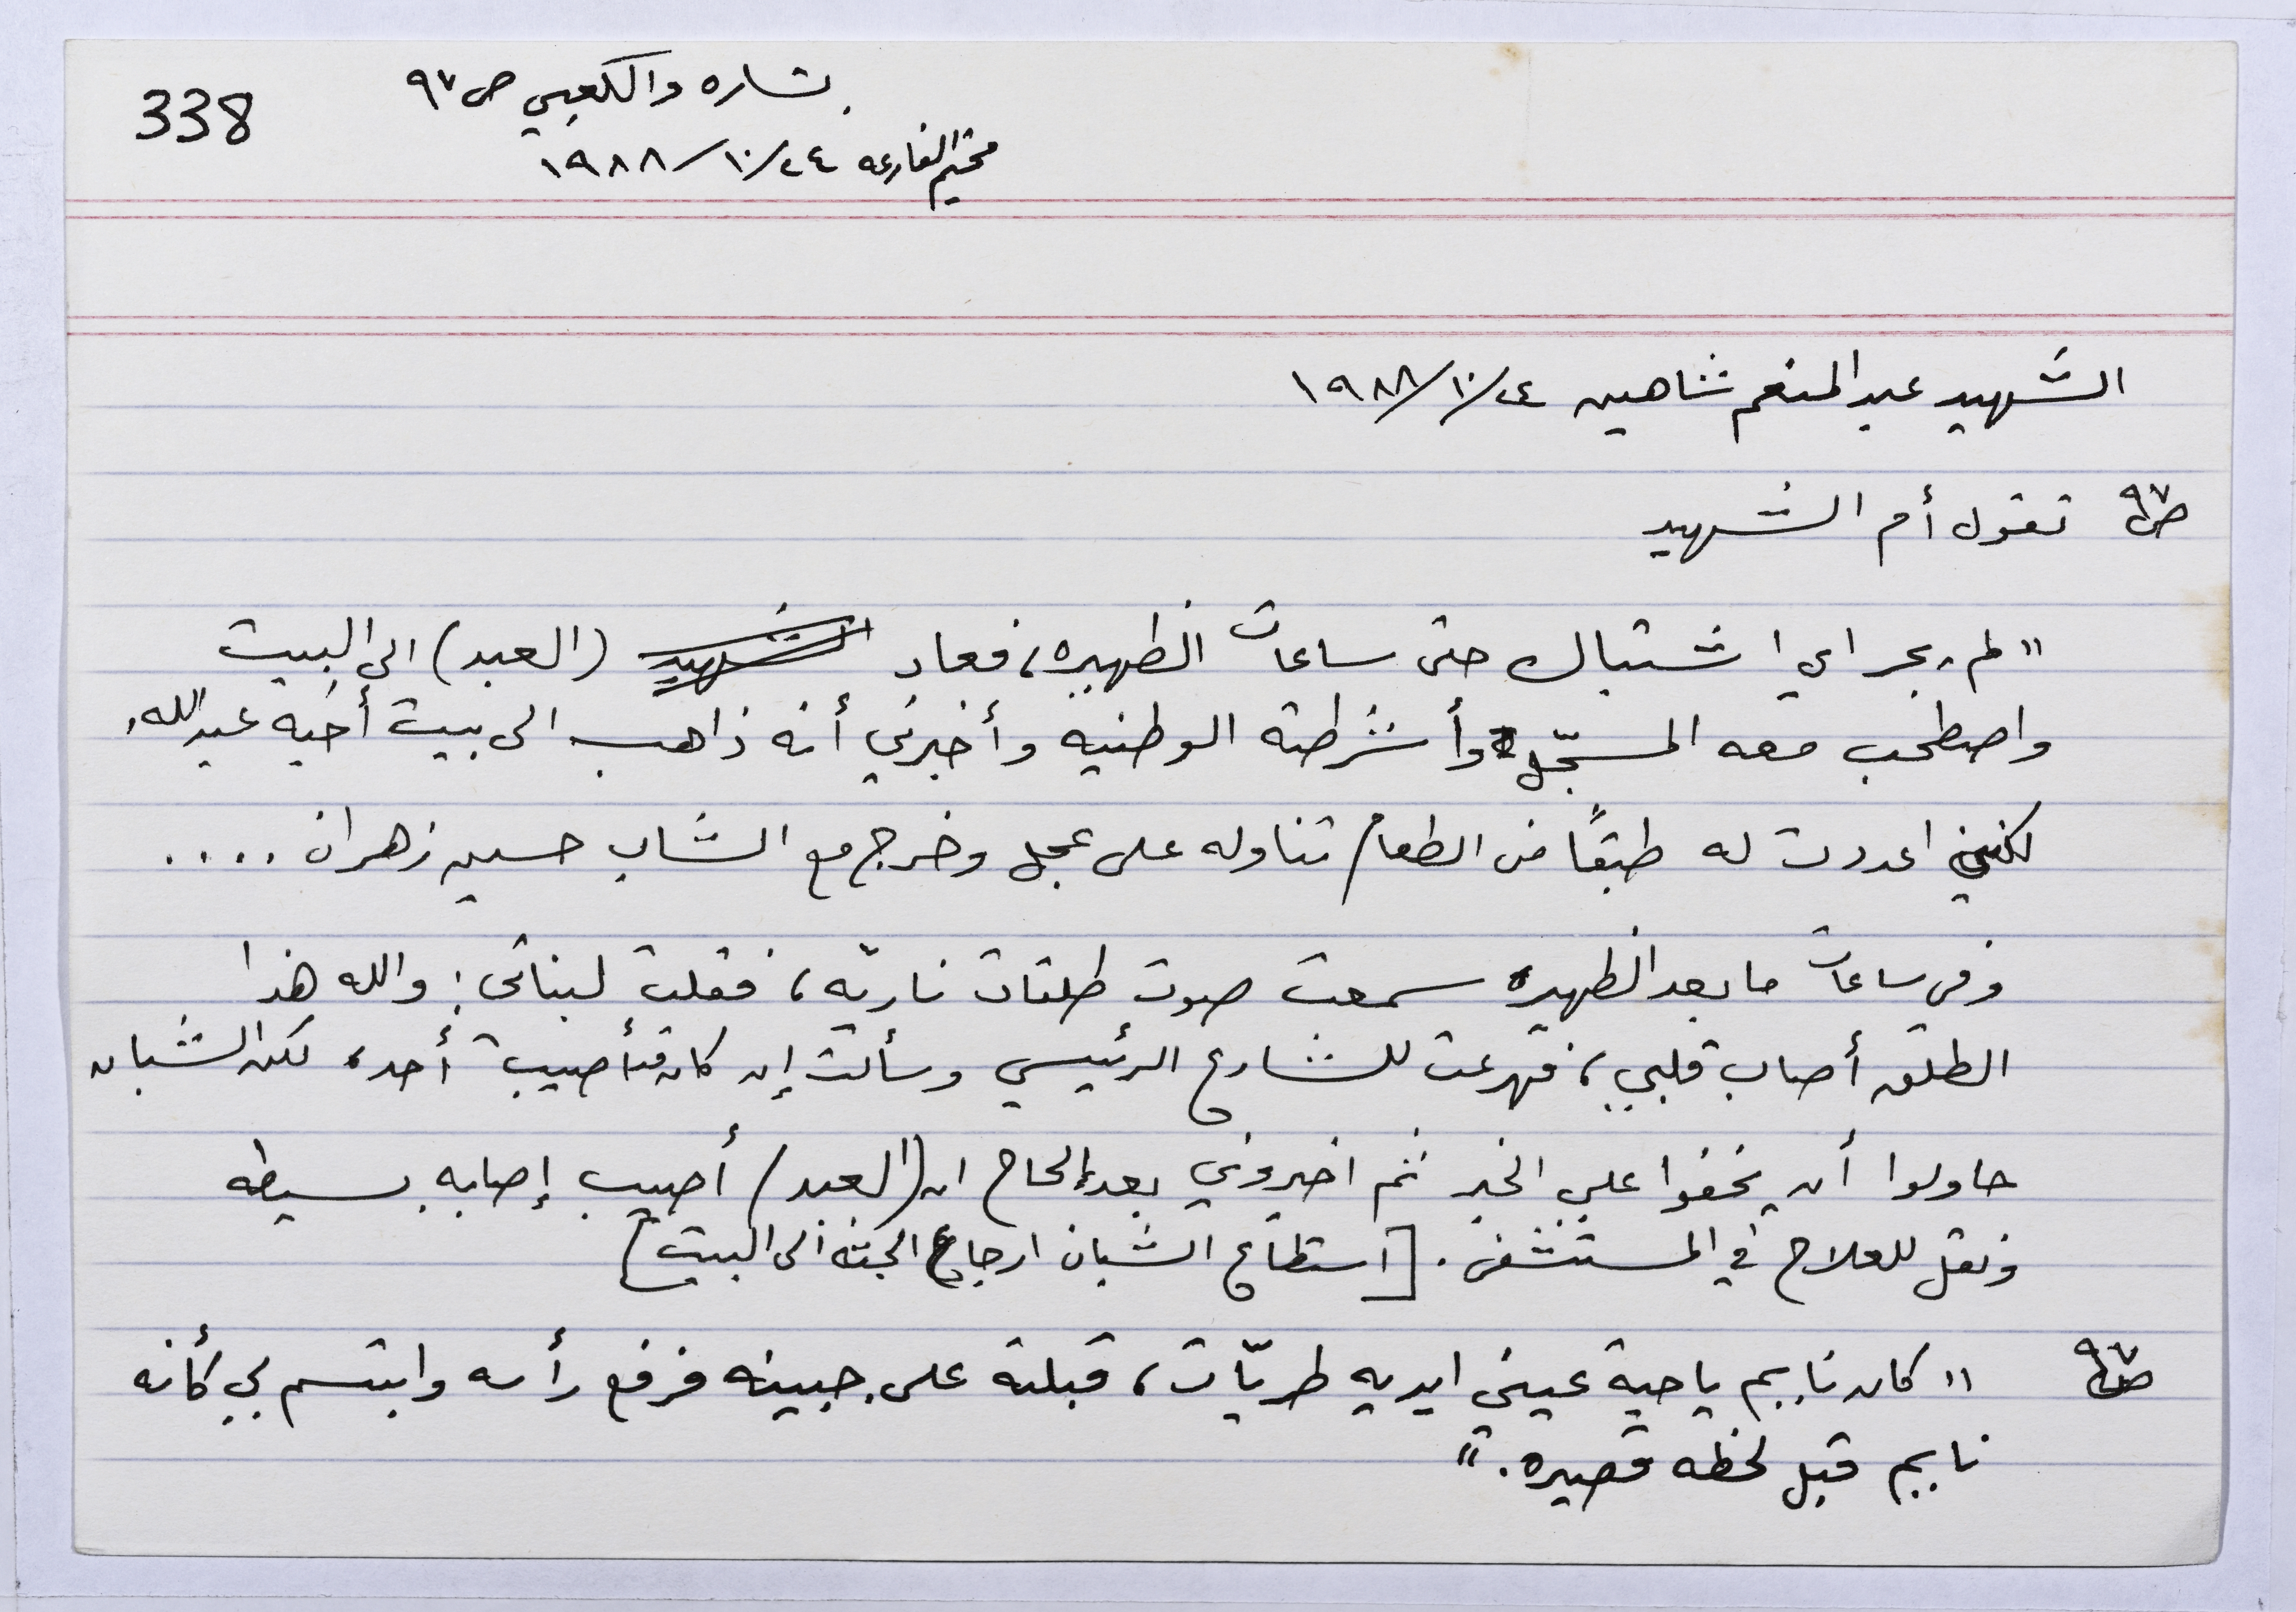 338
بشاره والكعبي ص ٩٧
مخيم الفارعه ٢٤/١٠/١٩٨٨
الشهيد عبد المنعم شاهين ٢٤/١٠/١٩٨٨
ص٩٧ تقول أم الشهيد
"لم يجر اي اشتباك حتى ساعات الظهيره، فعاد الشهيد (العبد) الى البيت
واصطحب معه المسجّل وأشرطته الوطنيه وأخبرني أنه ذاهب الى بيت أخيه عبدالله،
لكنني اعددت له طبقًا من الطعام تناوله على عجل وخرج مع الشاب حسين زهران ....
وفي ساعات ما بعد الظهيره سمعت صوت طلقات ناريّه، فقلت لبناتى: والله هذا
الطلق أصاب قلبي، فهرعت للشارع الرئيسي وسألت إن كان قد أصيب أحد، لكن الشبان
حاولوا أن يخفوا علي الخبر ثم اخبروني بعد إلحاح ان (العبد) أصيب إصابه بسيطه
ونقل للعلاج في المستشفى. [استطاع الشبان ارجاع الجثه الى البيت]
ص٩٧ "كان نايم يا حبة عيني ايديه طريّات، قبلته على جبينه فرفع رأسه وابتسم لي كأنه
نايم قبل لحظه قصيره."